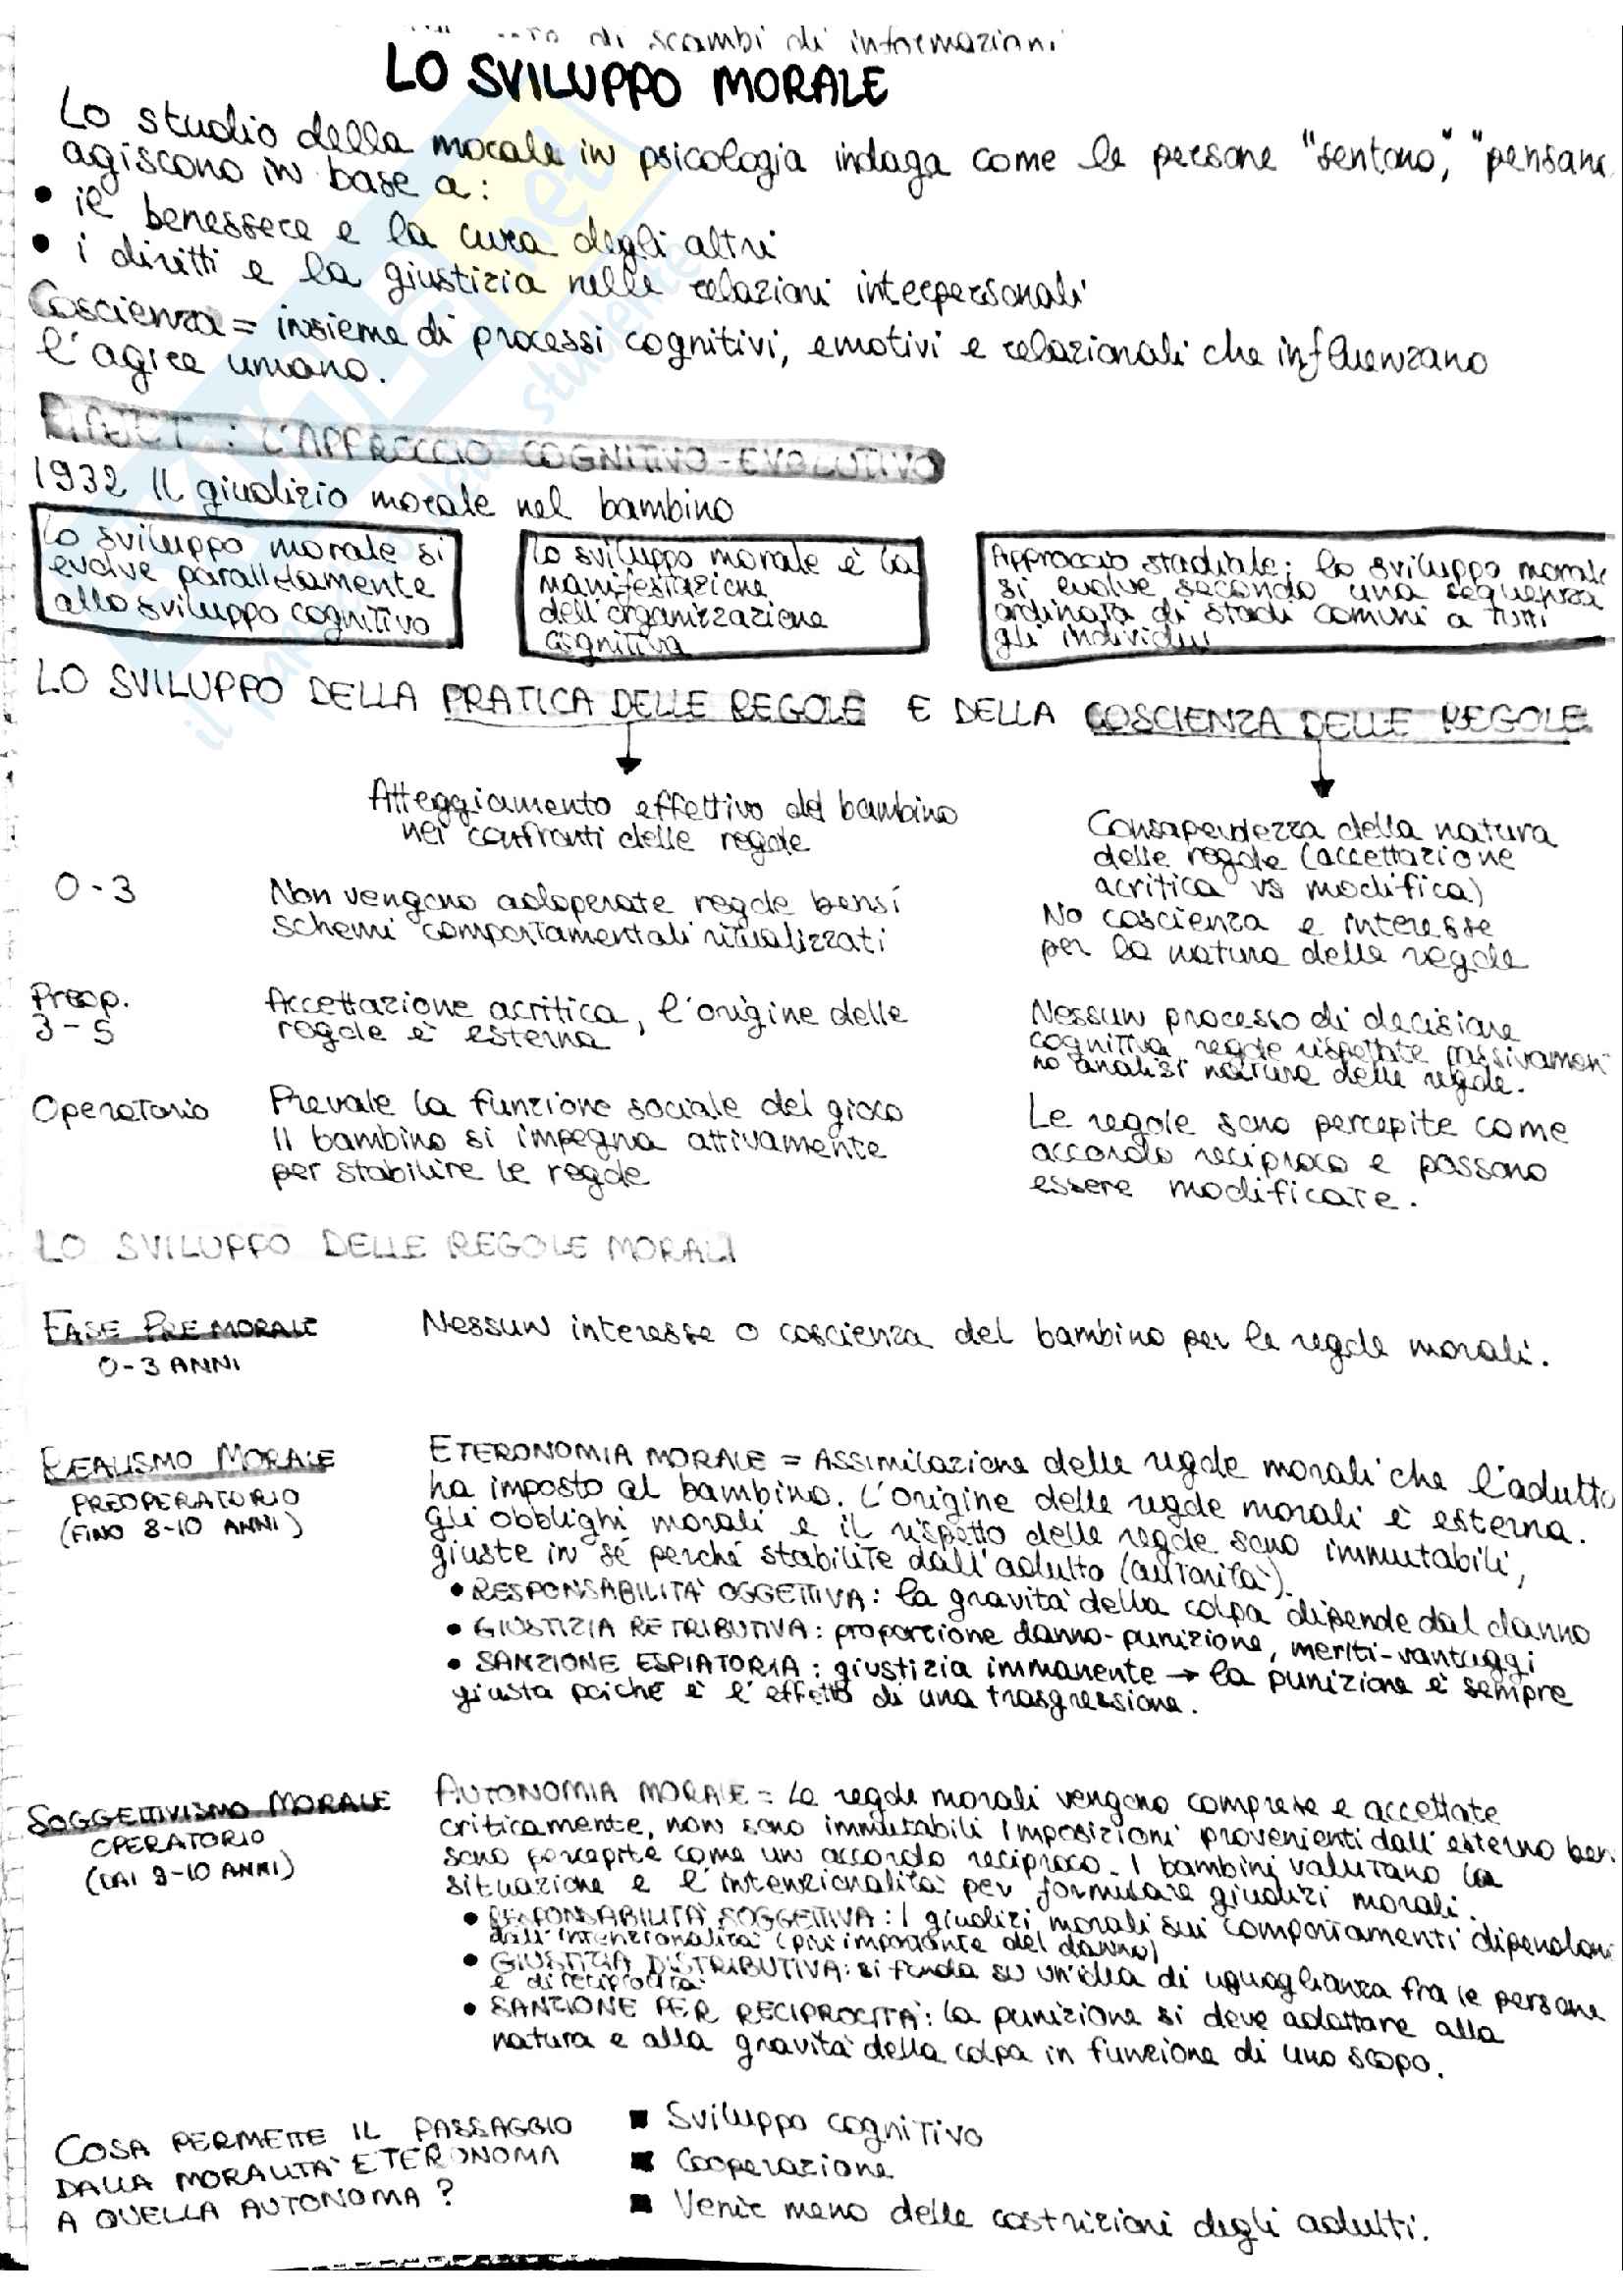 di scambi di informazioni
LO SVILUPPO MORALE
Lo studio della morale in psicologia indaga come le persone "sentono", "pensano
agiscono in base a:
• il benessere e la cura degli altri
• i diritti e la giustizia nelle relazioni interpersonali
Coscienza = insieme di processi cognitivi, emotivi e relazionali che influenzano
l'agire umano.
PIAGET : L'APPROCCIO COGNITIVO-EVOLUTIVO
1932 Il giudizio morale nel bambino
Lo sviluppo morale si
evolve parallelamente
allo sviluppo cognitivo
Lo sviluppo morale è la
manifestazione
dell'organizzazione
cognitiva
Approccio stadiale: lo sviluppo morale
si evolve secondo una sequenza
ordinata di stadi comuni a tutti
gli individui
LO SVILUPPO DELLA PRATICA DELLE REGOLE E DELLA COSCIENZA DELLE REGOLE
Atteggiamento effettivo del bambino
nei confronti delle regole
Consapevolezza della natura
delle regole (accettazione
acritica vs modifica)
0-3
Non vengono adoperate regole bensì
schemi comportamentali ritualizzati
No coscienza e interesse
per la natura delle regole
Preop.
3-5
Accettazione acritica, l'origine delle
regole è esterna
Nessun processo di decisione
cognitiva, regole rispettate passivamen
no analisi natura delle regole.
Operatorio
Prevale la funzione sociale del gioco
Il bambino si impegna attivamente
per stabilire le regole
Le regole sono percepite come
accordo reciproco e possono
essere modificate.
LO SVILUPPO DELLE REGOLE MORALI
FASE PREMORALE
0-3 ANNI
Nessun interesse o coscienza del bambino per le regole morali.
REALISMO MORALE
PREOPERATORIO
(FINO 8-10 ANNI)
ETERONOMIA MORALE = Assimilazione delle regole morali che l'adulto
ha imposto al bambino. L'origine delle regole morali è esterna.
Gli obblighi morali e il rispetto delle regole sono immutabili,
giuste in sé perché stabilite dall'adulto (autorità).
• RESPONSABILITA' OGGETTIVA: la gravità della colpa dipende dal danno
• GIUSTIZIA RETRIBUTIVA: proporzione danno-punizione, meriti-vantaggi
• SANZIONE ESPIATORIA: giustizia immanente → la punizione è sempre
giusta poiché è l'effetto di una trasgressione.
SOGGETTIVISMO MORALE
OPERATORIO
(DAI 8-10 ANNI)
AUTONOMIA MORALE = Le regole morali vengono comprese e accettate
criticamente, non sono immutabili imposizioni provenienti dall'esterno ben
sono percepite come un accordo reciproco. I bambini valutano la
situazione e l'intenzionalità per formulare giudizi morali.
• RESPONSABILITA' SOGGETTIVA: I giudizi morali sui comportamenti dipendon
dall'intenzionalità (più importante del danno)
• GIUSTIZIA DISTRIBUTIVA: si fonda su un'idea di uguaglianza fra le persone
e di reciprocità
• SANZIONE PER RECIPROCITA': la punizione si deve adattare alla
natura e alla gravità della colpa in funzione di uno scopo.
COSA PERMETTE IL PASSAGGIO
DALLA MORALITA' ETERONOMA
A QUELLA AUTONOMA?
■ Sviluppo cognitivo
■ Cooperazione
■ Venir meno delle costrizioni degli adulti.